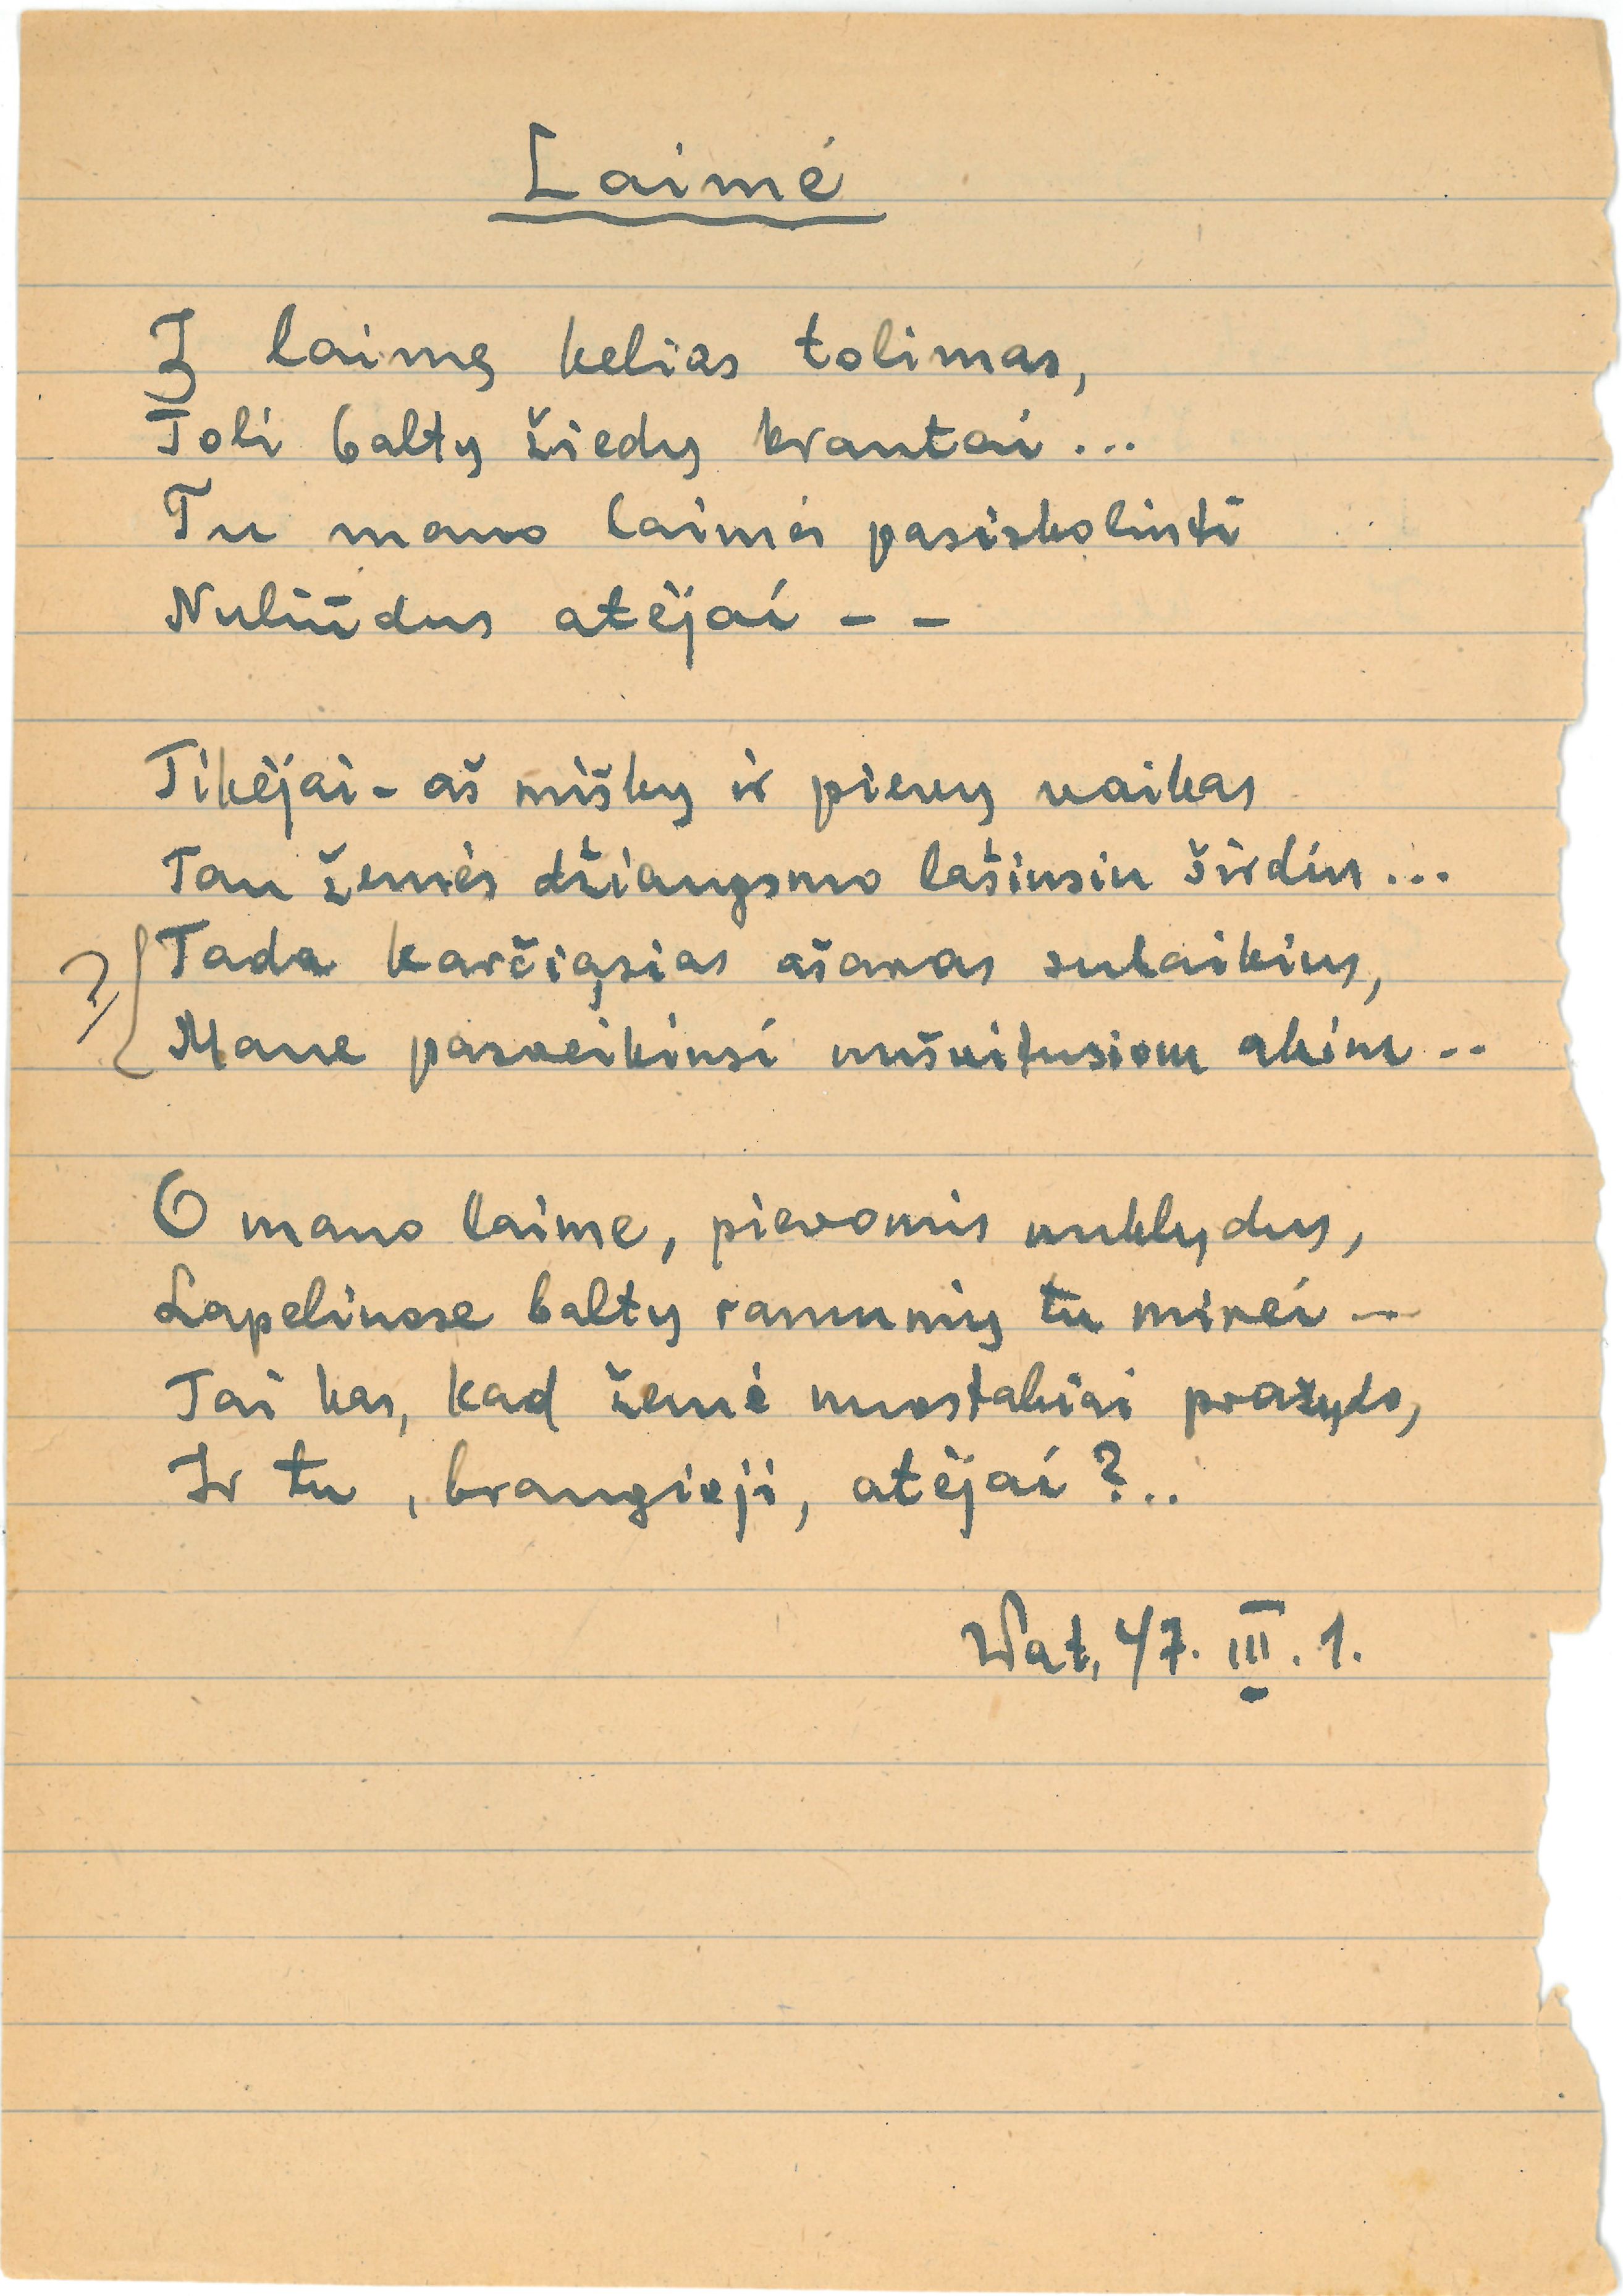 Laimė
Į laimę kelias tolimas,
Toli baltų žiedų krantai...
Tu mano laimės pasiskolinti
Nuliūdus atėjai - -
Tikėjai - aš miškų ir pievų vaikas
Tau žemės džiaugsmo lašinsiu širdin...
?{ Tada karčiąsias ašaras sulaikius,
Mane pasveikinsi nušvitusiom akim..
O mano laime, pievomis nuklydus,
Lapeliuose baltų ramunių tu mirei -
Tai kas, kad žemė nuostabiai pražydo,
Ir tu, brangioji, atėjai?..
Wat. 47. III. 1.